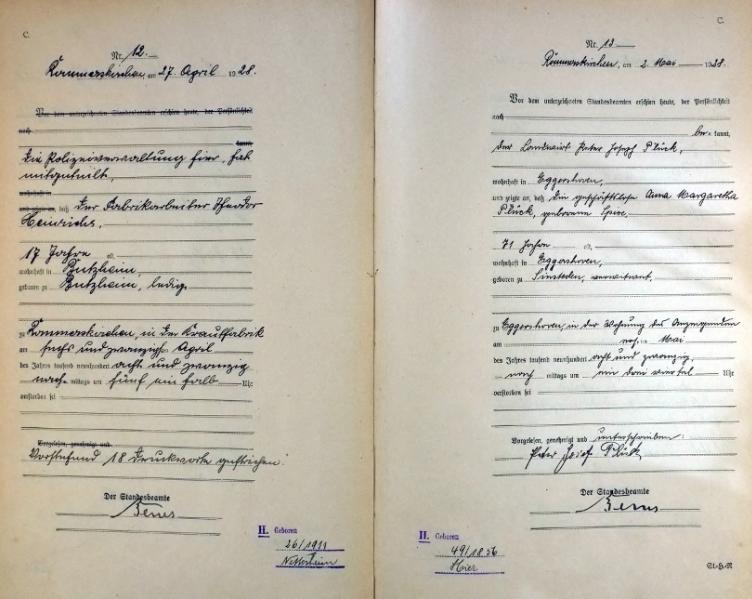 C.
Nr. 12.
Rommerskirchen, am 27 April 1928.
Vor dem unterzeichneten Standesbeamten erschien heute, der Persönlichkeit
nach
kannt,
die Polizeiverwaltung hier, hat
mitgeteilt,
wohnhaft in
daß der Fabrikarbeiter Theodor
Heinrichs,
17 Jahre alt,
wohnhaft in Butzheim,
geboren zu Butzheim, ledig,
zu Rommerskirchen, in der Krautfabrik
am sechs und zwanzigsten April
des Jahres tausend neunhundert acht und zwanzig
nach mittags um fünf ein halb Uhr
verstorben sei
Vorgelesen, genehmigt und
Vorstehend 18 Druckworte gestrichen.
Der Standesbeamte
H. Geboren
26/1911
C.
Nr. 13
Rommerskirchen, am 2. Mai 1928.
Vor dem unterzeichneten Standesbeamten erschien heute, der Persönlichkeit
nach
be= kannt,
der Landwirt Peter Joseph Plück,
wohnhaft in Eggershoven,
und zeigte an, daß die geschäftslose Anna Margaretha
Plück, geborene
71 Jahre alt,
wohnhaft in Eggershoven,
geboren zu Sinsteden, verwitwet,
zu Eggershoven, in der Wohnung des Anzeigenden
am ersten Mai
des Jahres tausend neunhundert acht und zwanzig
nach mittags um ein drei viertel Uhr
verstorben sei
Vorgelesen, genehmigt und unterschrieben:
Peter Josef Plück
Der Standesbeamte
H. Geboren
49/1856
Hier
St.=H.=R